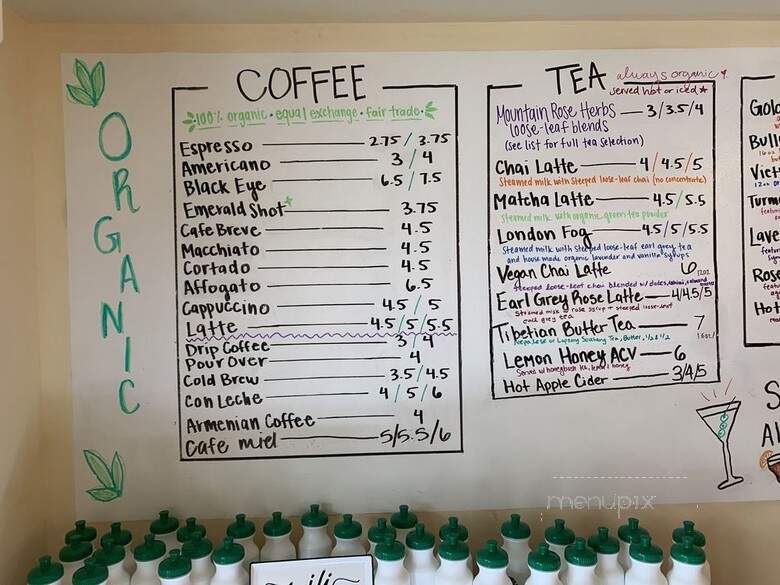 ORGANIC
COFFEE
100% organic · equal exchange · fair trade
Espresso 2.75 / 3.75
Americano 3 / 4
Black Eye 6.5 / 7.5
Emerald Shot 3.75
Cafe Breve 4.5
Macchiato 4.5
Cortado 4.5
Affogato 6.5
Cappuccino 4.5 / 5
Latte 4.5/5/5.5
Drip Coffee 3 / 4
Pour Over 4
Cold Brew 3.5/4.5
Con Leche 4 / 5 / 6
Armenian Coffee 4
Cafe miel 5/5.5/6
TEA always organic
served hot or iced
Mountain Rose Herbs 3/3.5/4
loose-leaf blends
(see list for full tea selection)
Chai Latte 4/4.5/5
Steamed milk with steeped loose-leaf chai (no concentrate)
Matcha Latte 4.5/5.5
Steamed milk with organic green tea powder
London Fog 4.5/5/5.5
Steamed milk with steeped loose-leaf earl grey tea
and house made organic lavender and vanilla syrups
Vegan Chai Latte 6 12oz
steeped loose-leaf chai blended w/ dates,
Earl Grey Rose Latte 4/4.5/5
steamed milk w/ rose syrup + steeped loose-leaf
earl grey tea
Tibetian Butter Tea 7
16oz
Nepalese or Lapsang Souchong Tea, Butter,
Lemon Honey ACV 6
Hot Apple Cider 3/4/5
Gol
Bull
16oz
Vict
12oz
Turm
featuri
Lave
featur
Rose
featur
Hot
S
Al
menupix